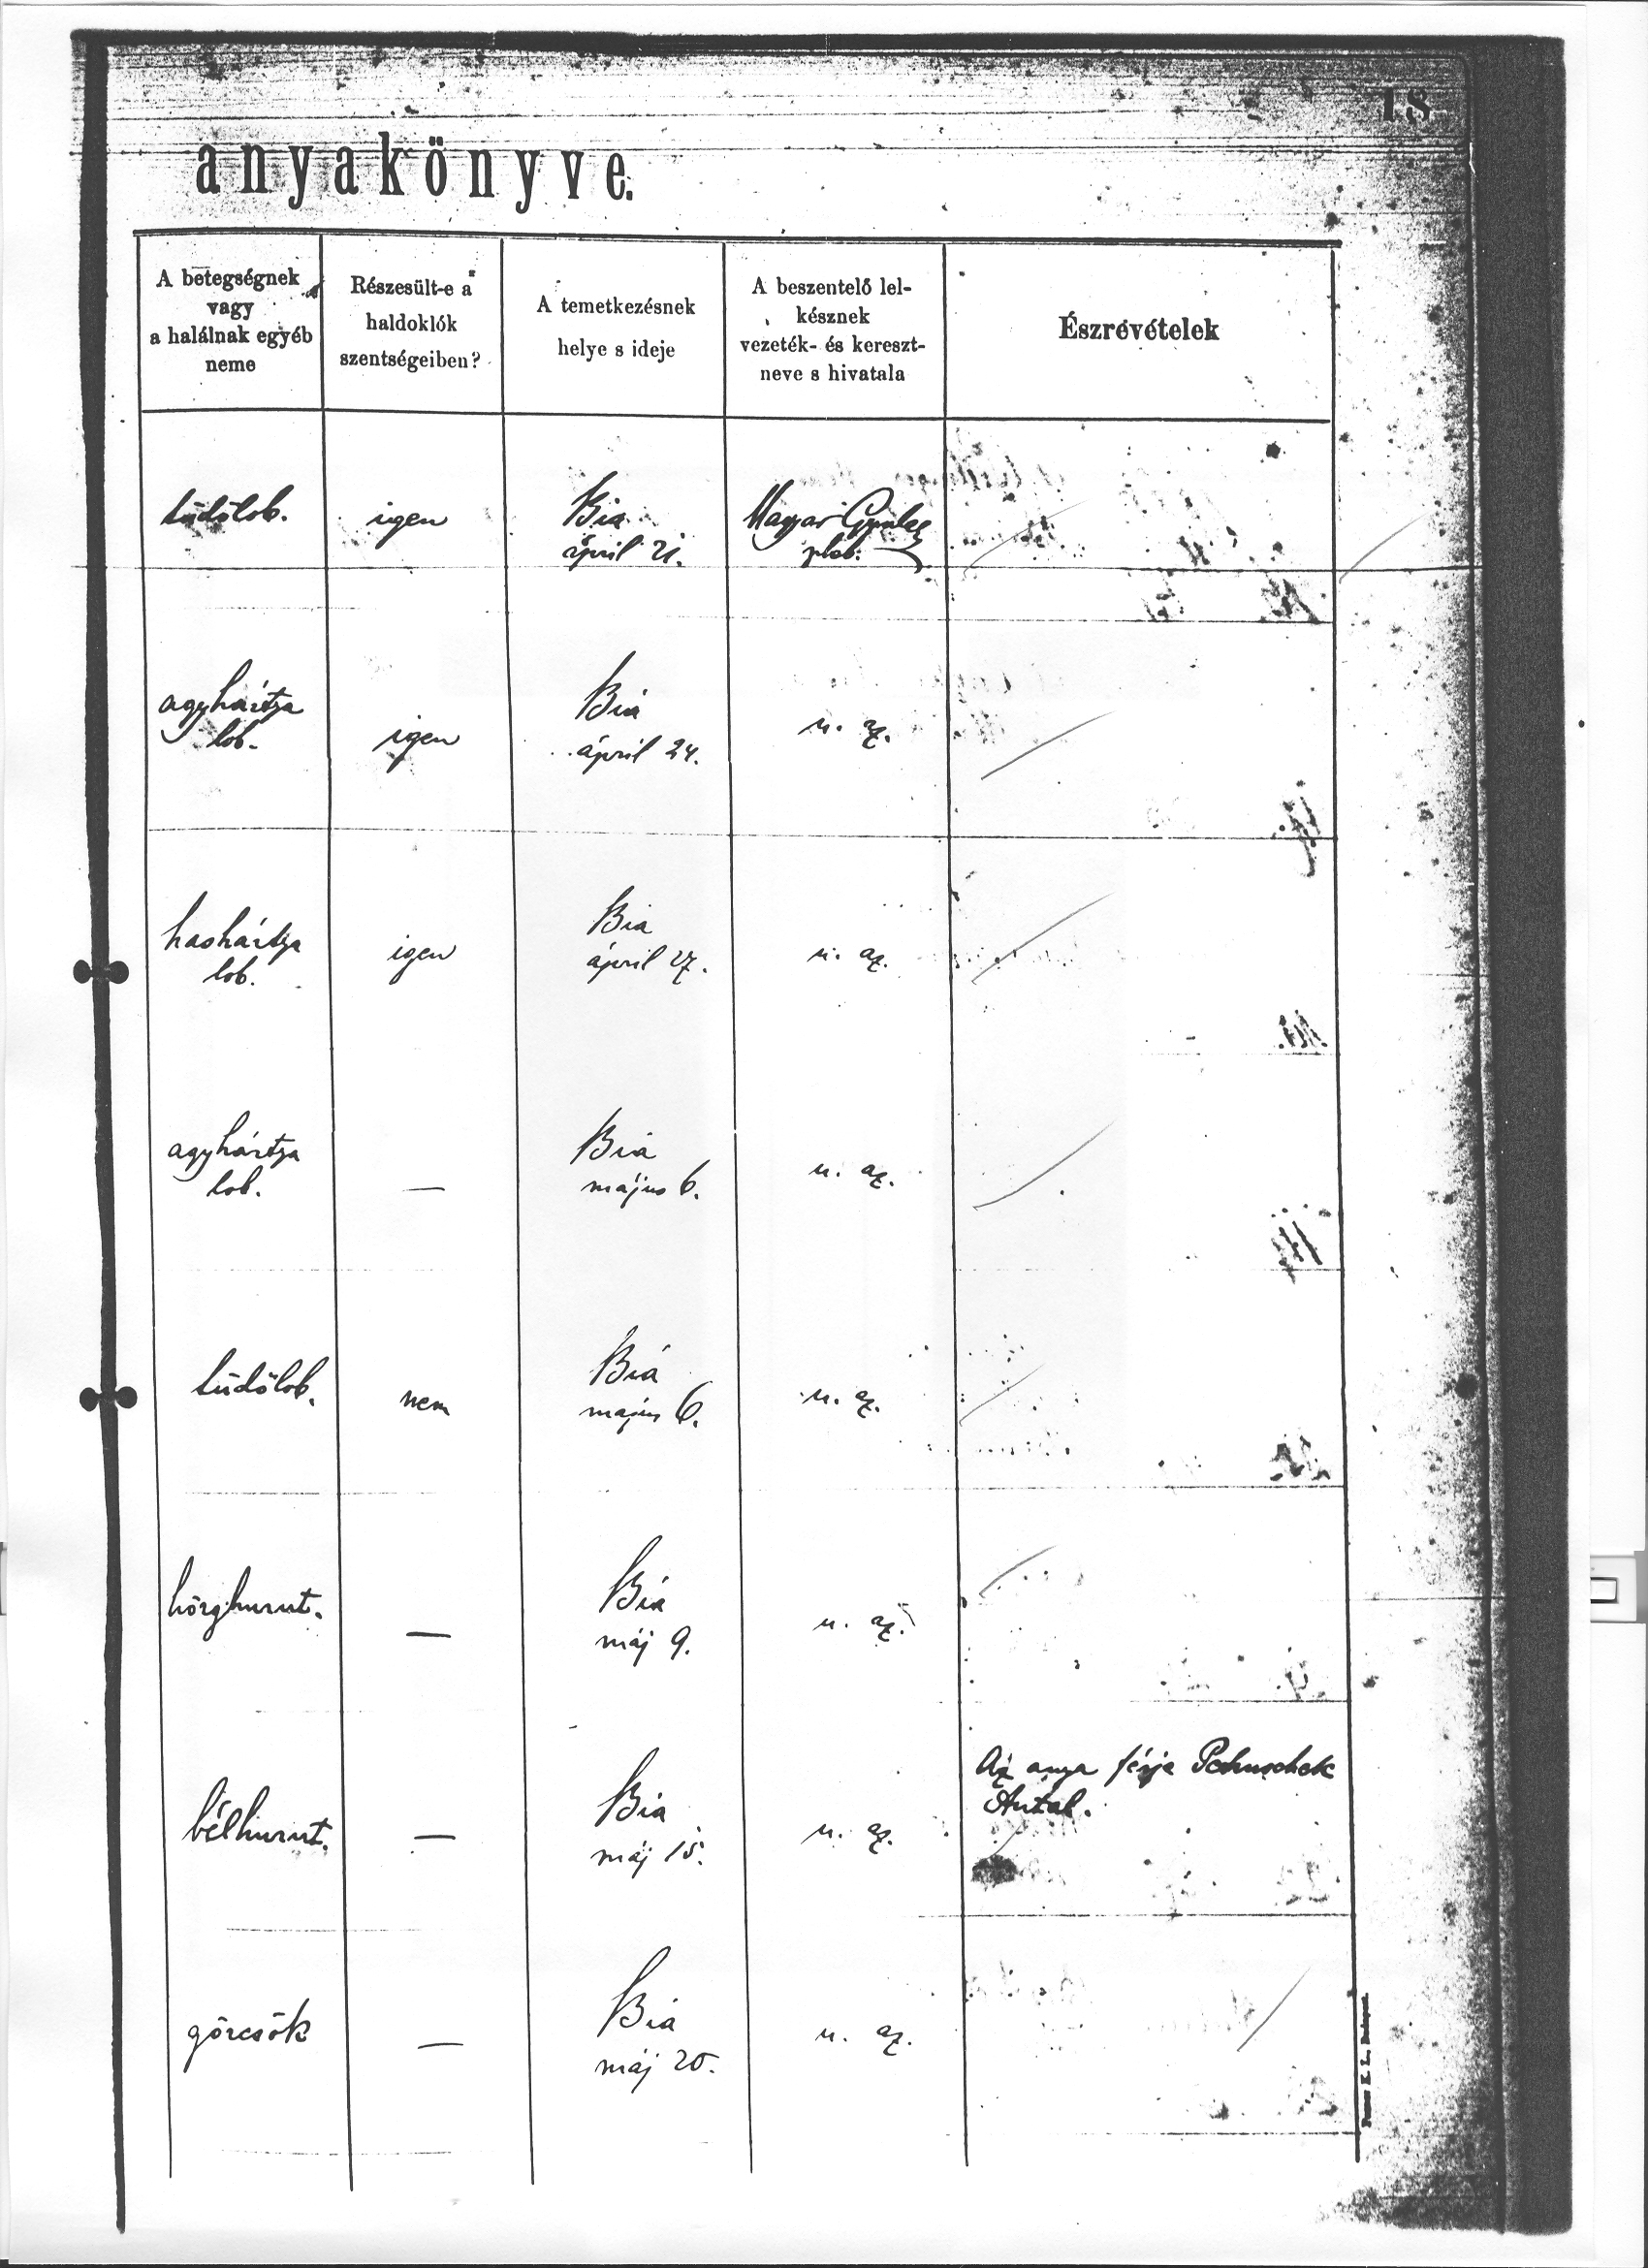 18
anyakönyve.
A betegségnek
vagy
a halálnak egyéb
neme
Részesült-e a
haldoklók
szentségeiben?
A temetkezésnek
helye s ideje
A beszentelő lel-
késznek
vezeték- és kereszt-
neve s hivatala
Észrevételek
tüdőlob.
igen
Bia
ápril 21.
Magyar Gyula
plob:
agyhártya
lob.
igen
Bia
ápril 24.
u. az.
hashártya
lob.
igen
Bia
ápril 27.
u. az.
agyhártya
lob.
—
Bia
május 6.
u. az.
tüdőlob.
nem
Bia
május 6.
u. az.
hörghurut.
—
Bia
máj 9.
u. az.
bélhurut.
—
Bia
máj 15.
u. az.
Az anya férje
Antal.
görcsök
—
Bia
máj 20.
u. az.